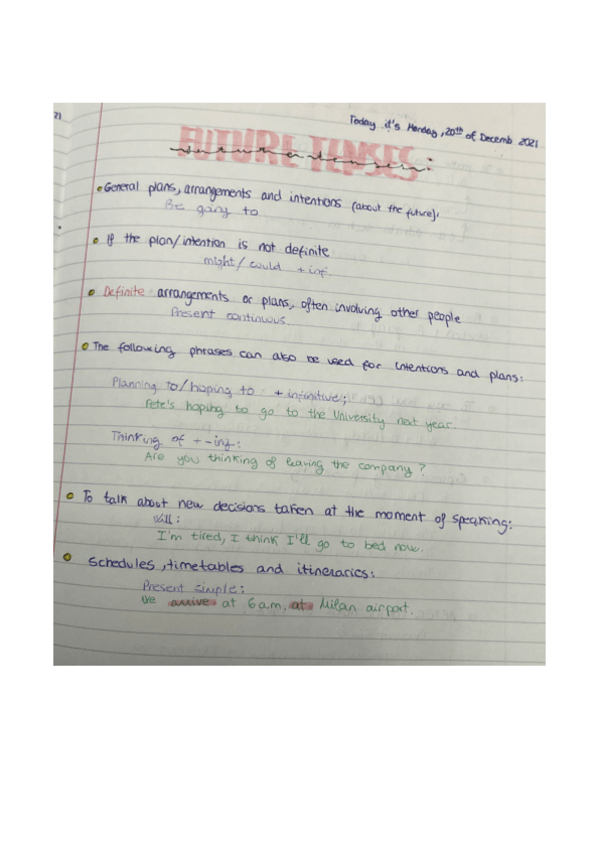 21
Today it's Monday, 20th of Decemb 2021
FUTURE TENSES:
future tenses
General plans, arrangements and intentions (about the future):
Be going to
If the plan/intention is not definite
might/could + inf
Definite arrangements or plans, often involving other people
Present continuous.
The following phrases can also be used for intentions and plans:
Planning to/hoping to + infinitive;
Pete's hoping to go to the University next year.
Thinking of + -ing:
Are you thinking of leaving the company?
To talk about new decisions taken at the moment of speaking:
Will:
I'm tired, I think I'll go to bed now.
Schedules, timetables and itineraries:
Present simple:
We arrive at 6 a.m, at Milan airport.